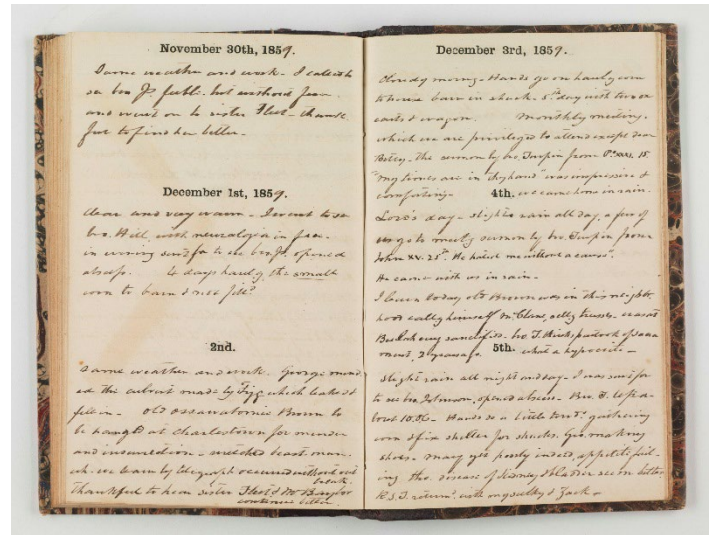 November 30th, 1859.
Same weather and work. I called to
see bro Jo. feeble. but without fever
and went on to sister Fleet - thank-
ful to find her better -
December 1st, 1859.
Clear and very warm - I went to see
bro. Hill with neuralgia in face.
in evening sent for to see bro. Jo. opened
abscess. 4 days haul'g the small
corn to barn & not fil'd
2nd.
Same weather and work. George mend
ed the culvert made by Figg which leaked &
fell in - Old Ossawatomie Brown to
be hang'd at Charlestown for murder
and insurrection - wretched beast man.
wh. we learn by telegraph occurred without out
break.
Thankful to hear sister Fleet & Mr Baylor
continue better.
December 3rd, 1859.
Cloudy morng - Hands go on haulg corn
to house barn in shuck. 5th day with two ox
carts & wagon. Monthly meeting.
which we are privileged to attend except dear
Betsy. The sermon by bro. Turpin from Ps. xxxi. 15.
"My times are in thy hand" was impressive &
comforting - we came home in rain.
4th.
Lord's day - slight rain all day, a few of
us go to meetg sermon by bro. Turpin from
John xv. 25th. He hated me without a cause".
He came with us in rain -
I learn today old Brown was in this neighb.
hood calling himself Mc Clane, selling trusses. was at
Beulah evg
ment, 2 years ago. what a hypocrite -
5th.
Slight rain all night and day - I was sent for
to see bro Johnson, opened abscess - Bro. T. left a-
bout 10.O'c - Hands do a little towds. gathering
corn & fix shelter for shucks. Geo. making
shoes. Macy
ing tho. disease of kidney & bladder seem better
R.S.T. returnd. with my sulky & Zack -